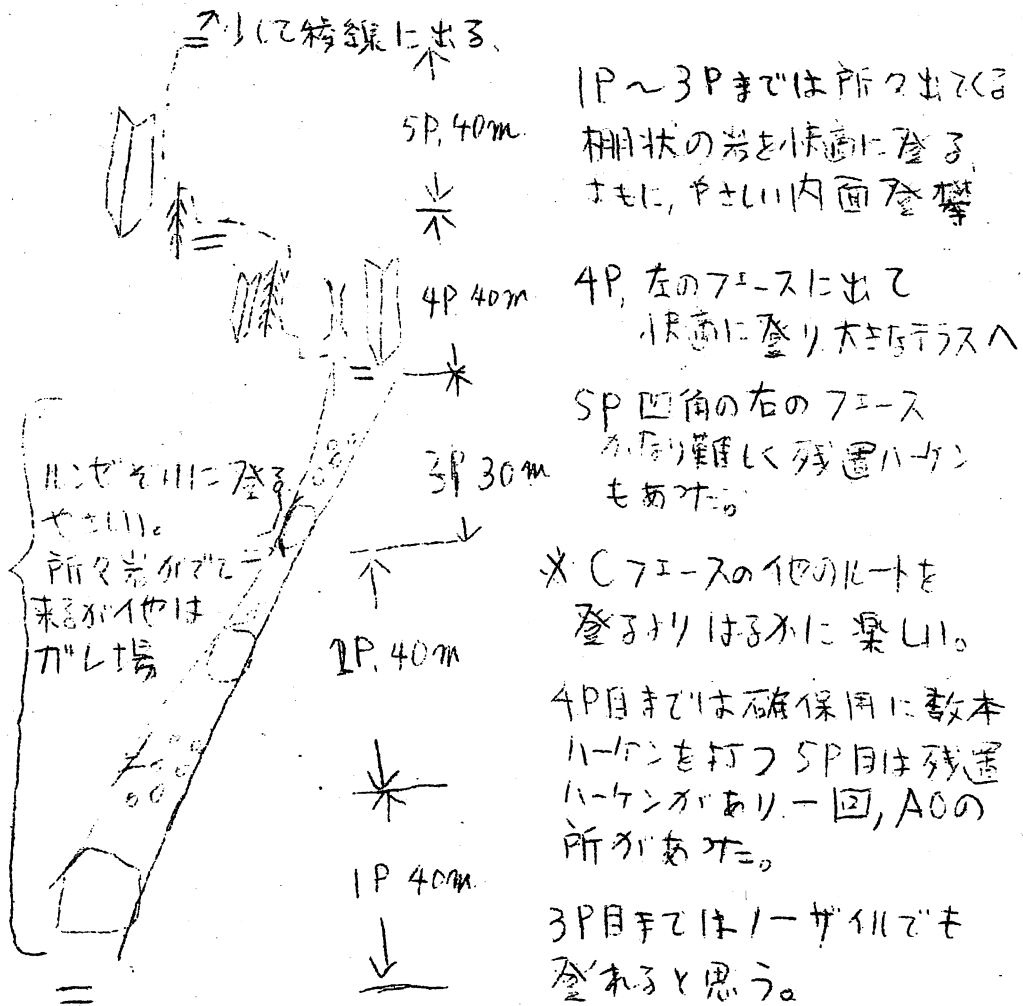 少して稜線に出る、
5P, 40m
4P 40m
3P 30m
2P, 40m
1P 40m
ルンゼぞいに登る
やさしい。
所々岩がでて
来るが他は
ガレ場
1P～3Pまでは所々出てくる
棚状の岩を快適に登る、
ともに, やさしい内面登攀
4P, 左のフェースに出て
快適に登り大きなテラスへ
5P 凹角の右のフェース
かなり難しく残置ハーケン
もあった。
※ Cフェースの他のルートを
登るよりはるかに楽しい。
4P目までは確保用に数本
ハーケンを打つ 5P目は残置
ハーケンがあり一回, A0の
所があった。
3P目まではノーザイルでも
登れると思う。